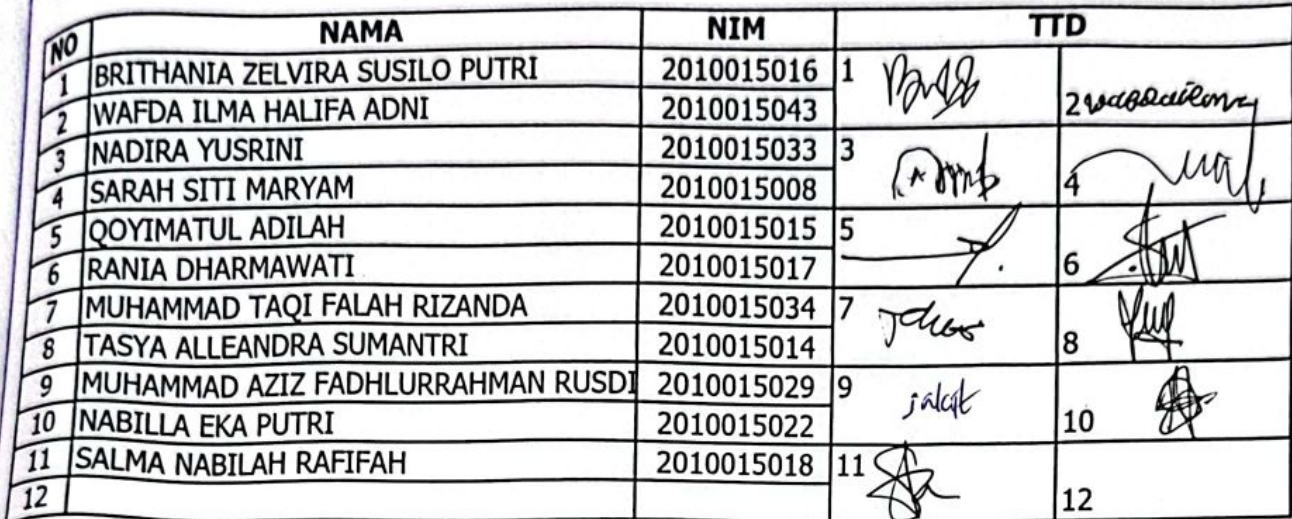 NO NAMA NIM TTD
1 BRITHANIA ZELVIRA SUSILO PUTRI 2010015016 1
2 WAFDA ILMA HALIFA ADNI 2010015043 2
3 NADIRA YUSRINI 2010015033 3
4 SARAH SITI MARYAM 2010015008 4
5 QOYIMATUL ADILAH 2010015015 5
6 RANIA DHARMAWATI 2010015017 6
7 MUHAMMAD TAQI FALAH RIZANDA 2010015034 7
8 TASYA ALLEANDRA SUMANTRI 2010015014 8
9 MUHAMMAD AZIZ FADHLURRAHMAN RUSDI 2010015029 9
10 NABILLA EKA PUTRI 2010015022 10
11 SALMA NABILAH RAFIFAH 2010015018 11
12 12